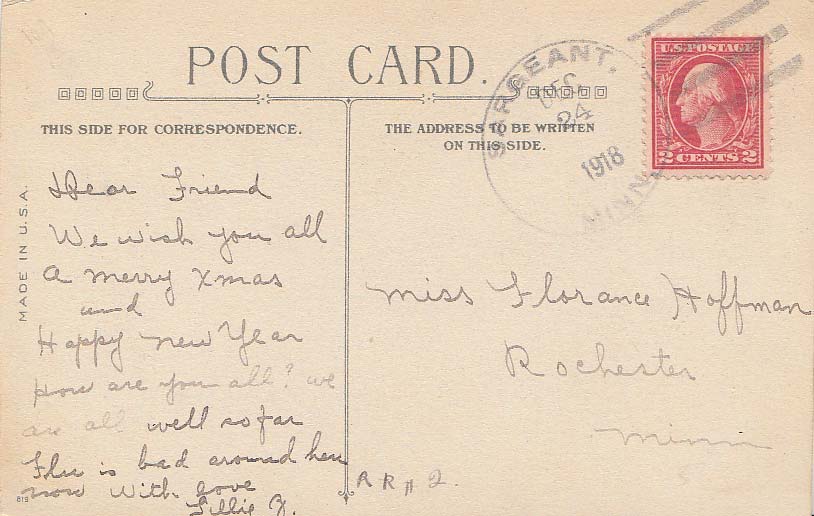 POST CARD.
THIS SIDE FOR CORRESPONDENCE.
THE ADDRESS TO BE WRITTEN
ON THIS SIDE.
SARGEANT.
DEC
24
1918
MINN.
U.S. POSTAGE
2 CENTS 2
MADE IN U.S.A.
Dear Friend
We wish you all
a merry Xmas
and
Happy New Year
How are you all? we
are all well so far
Flu is bad around here
now With love
Lillie J.
Miss Florance Hoffman
Rochester
Minn
RR# 2.
819